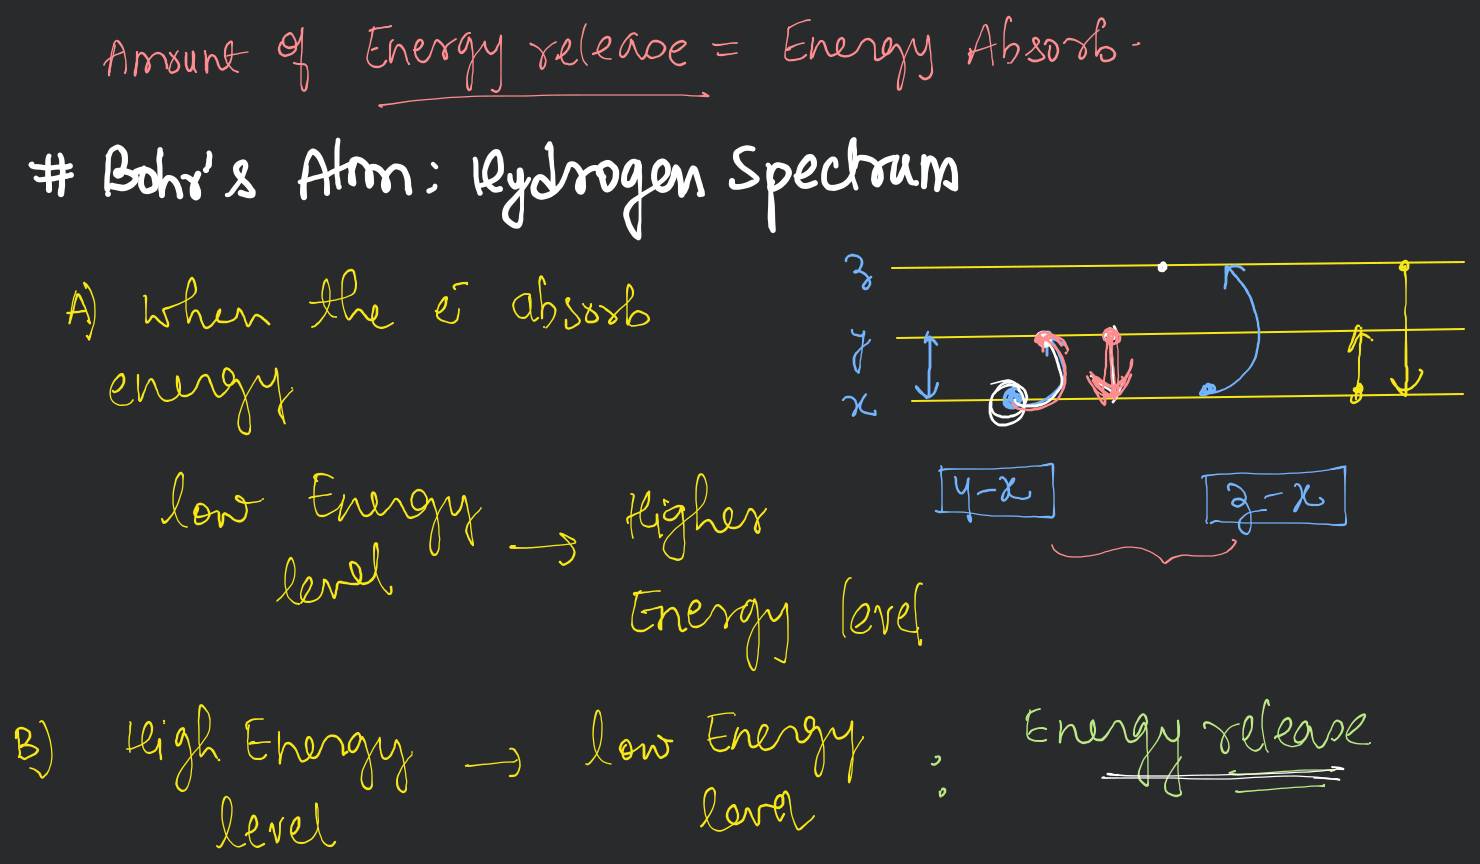 Amount of Energy release = Energy Absorb.
# Bohr's Atom: Hydrogen Spectrum
A) when the e⁻ absorb
energy
low Energy level → Higher Energy level
z
y
x
y-x
z-x
B) High Energy level → low Energy level : Energy release